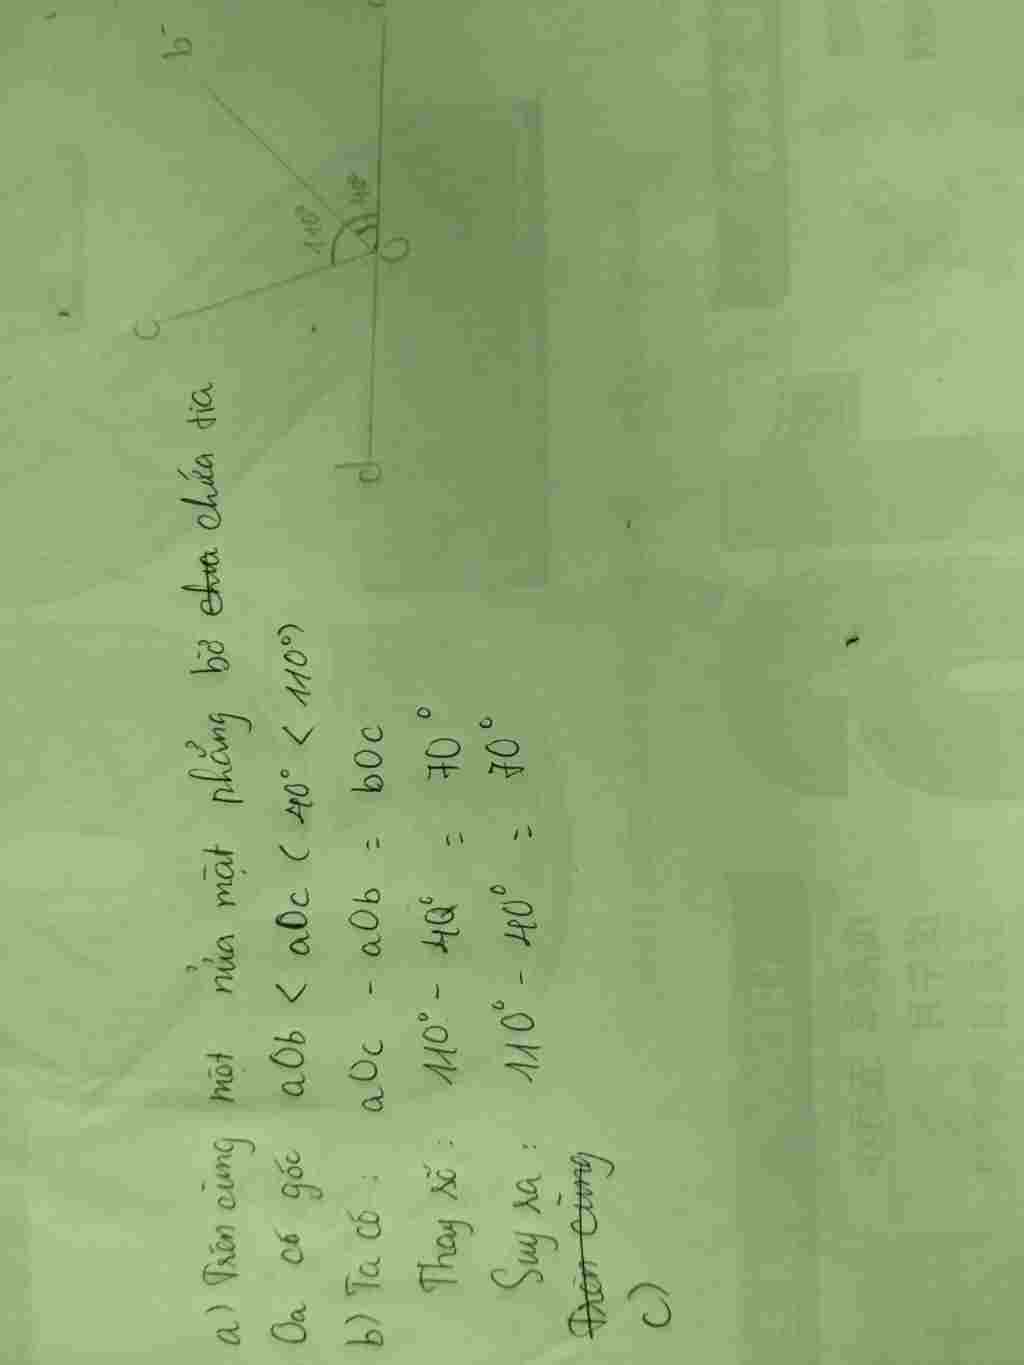 b
c
110°
40°
O
d
a) Trên cùng một nửa mặt phẳng bờ chưa chứa tia
Oa có góc aOb < aOc ( 40° < 110°)
b) Ta có : aOc - aOb = bOc
Thay số : 110° - 40° = 70°
Suy ra : 110° - 40° = 70°
Trên cùng
c)